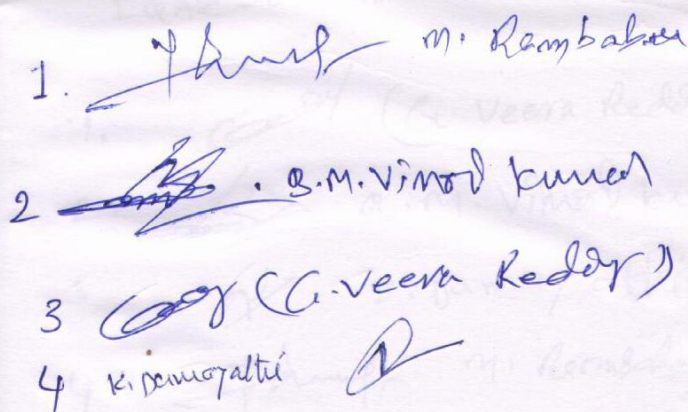 1. M. Rambabu
2 B.M. Vinod Kumar
3 (G. Veera Reddy)
4 K. Damayathi